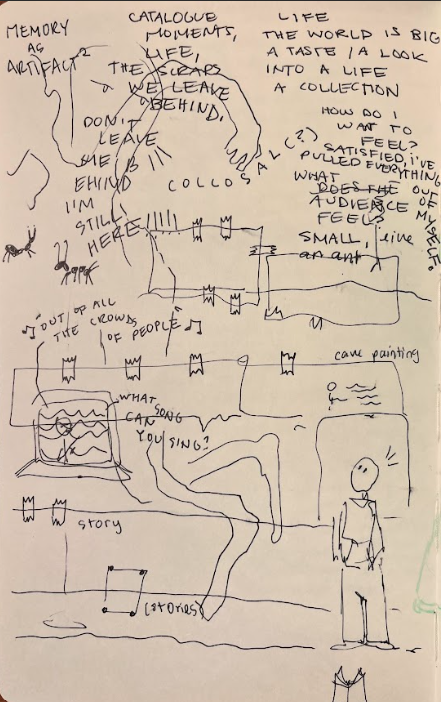 MEMORY
AS
ARTIFACT?
CATALOGUE
MOMENTS,
LIFE,
THE SCRAPS
WE LEAVE
BEHIND.
LIFE
THE WORLD IS BIG
A TASTE / A LOOK
INTO A LIFE
A COLLECTION
DON'T
LEAVE
ME B
EHIND
I'M
STILL
HERE!!!!!
COLLOSAL(?)
HOW DO I
WANT TO
FEEL?
SATISFIED, I'VE
PULLED EVERYTHING
OUT OF
MYSELF.
WHAT
DOES THE
AUDIENCE
FEEL?
SMALL, like
an ant
♫ "OUT OF ALL
THE CROWDS
OF PEOPLE" ♫
cave painting
WHAT SONG
CAN
YOU SING?
story
(stories)